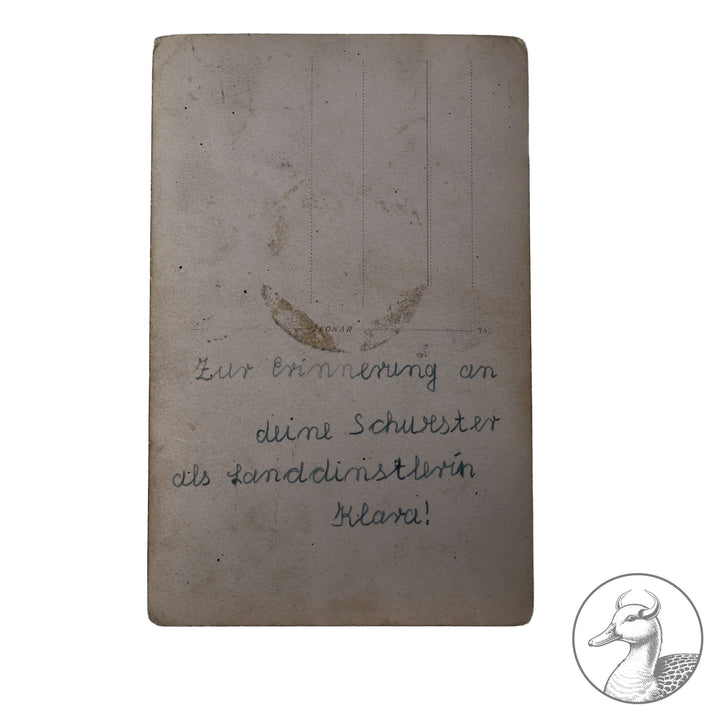 LEONAR 742
Zur Erinnerung an
deine Schwester
als Landdinstlerin
Klara!